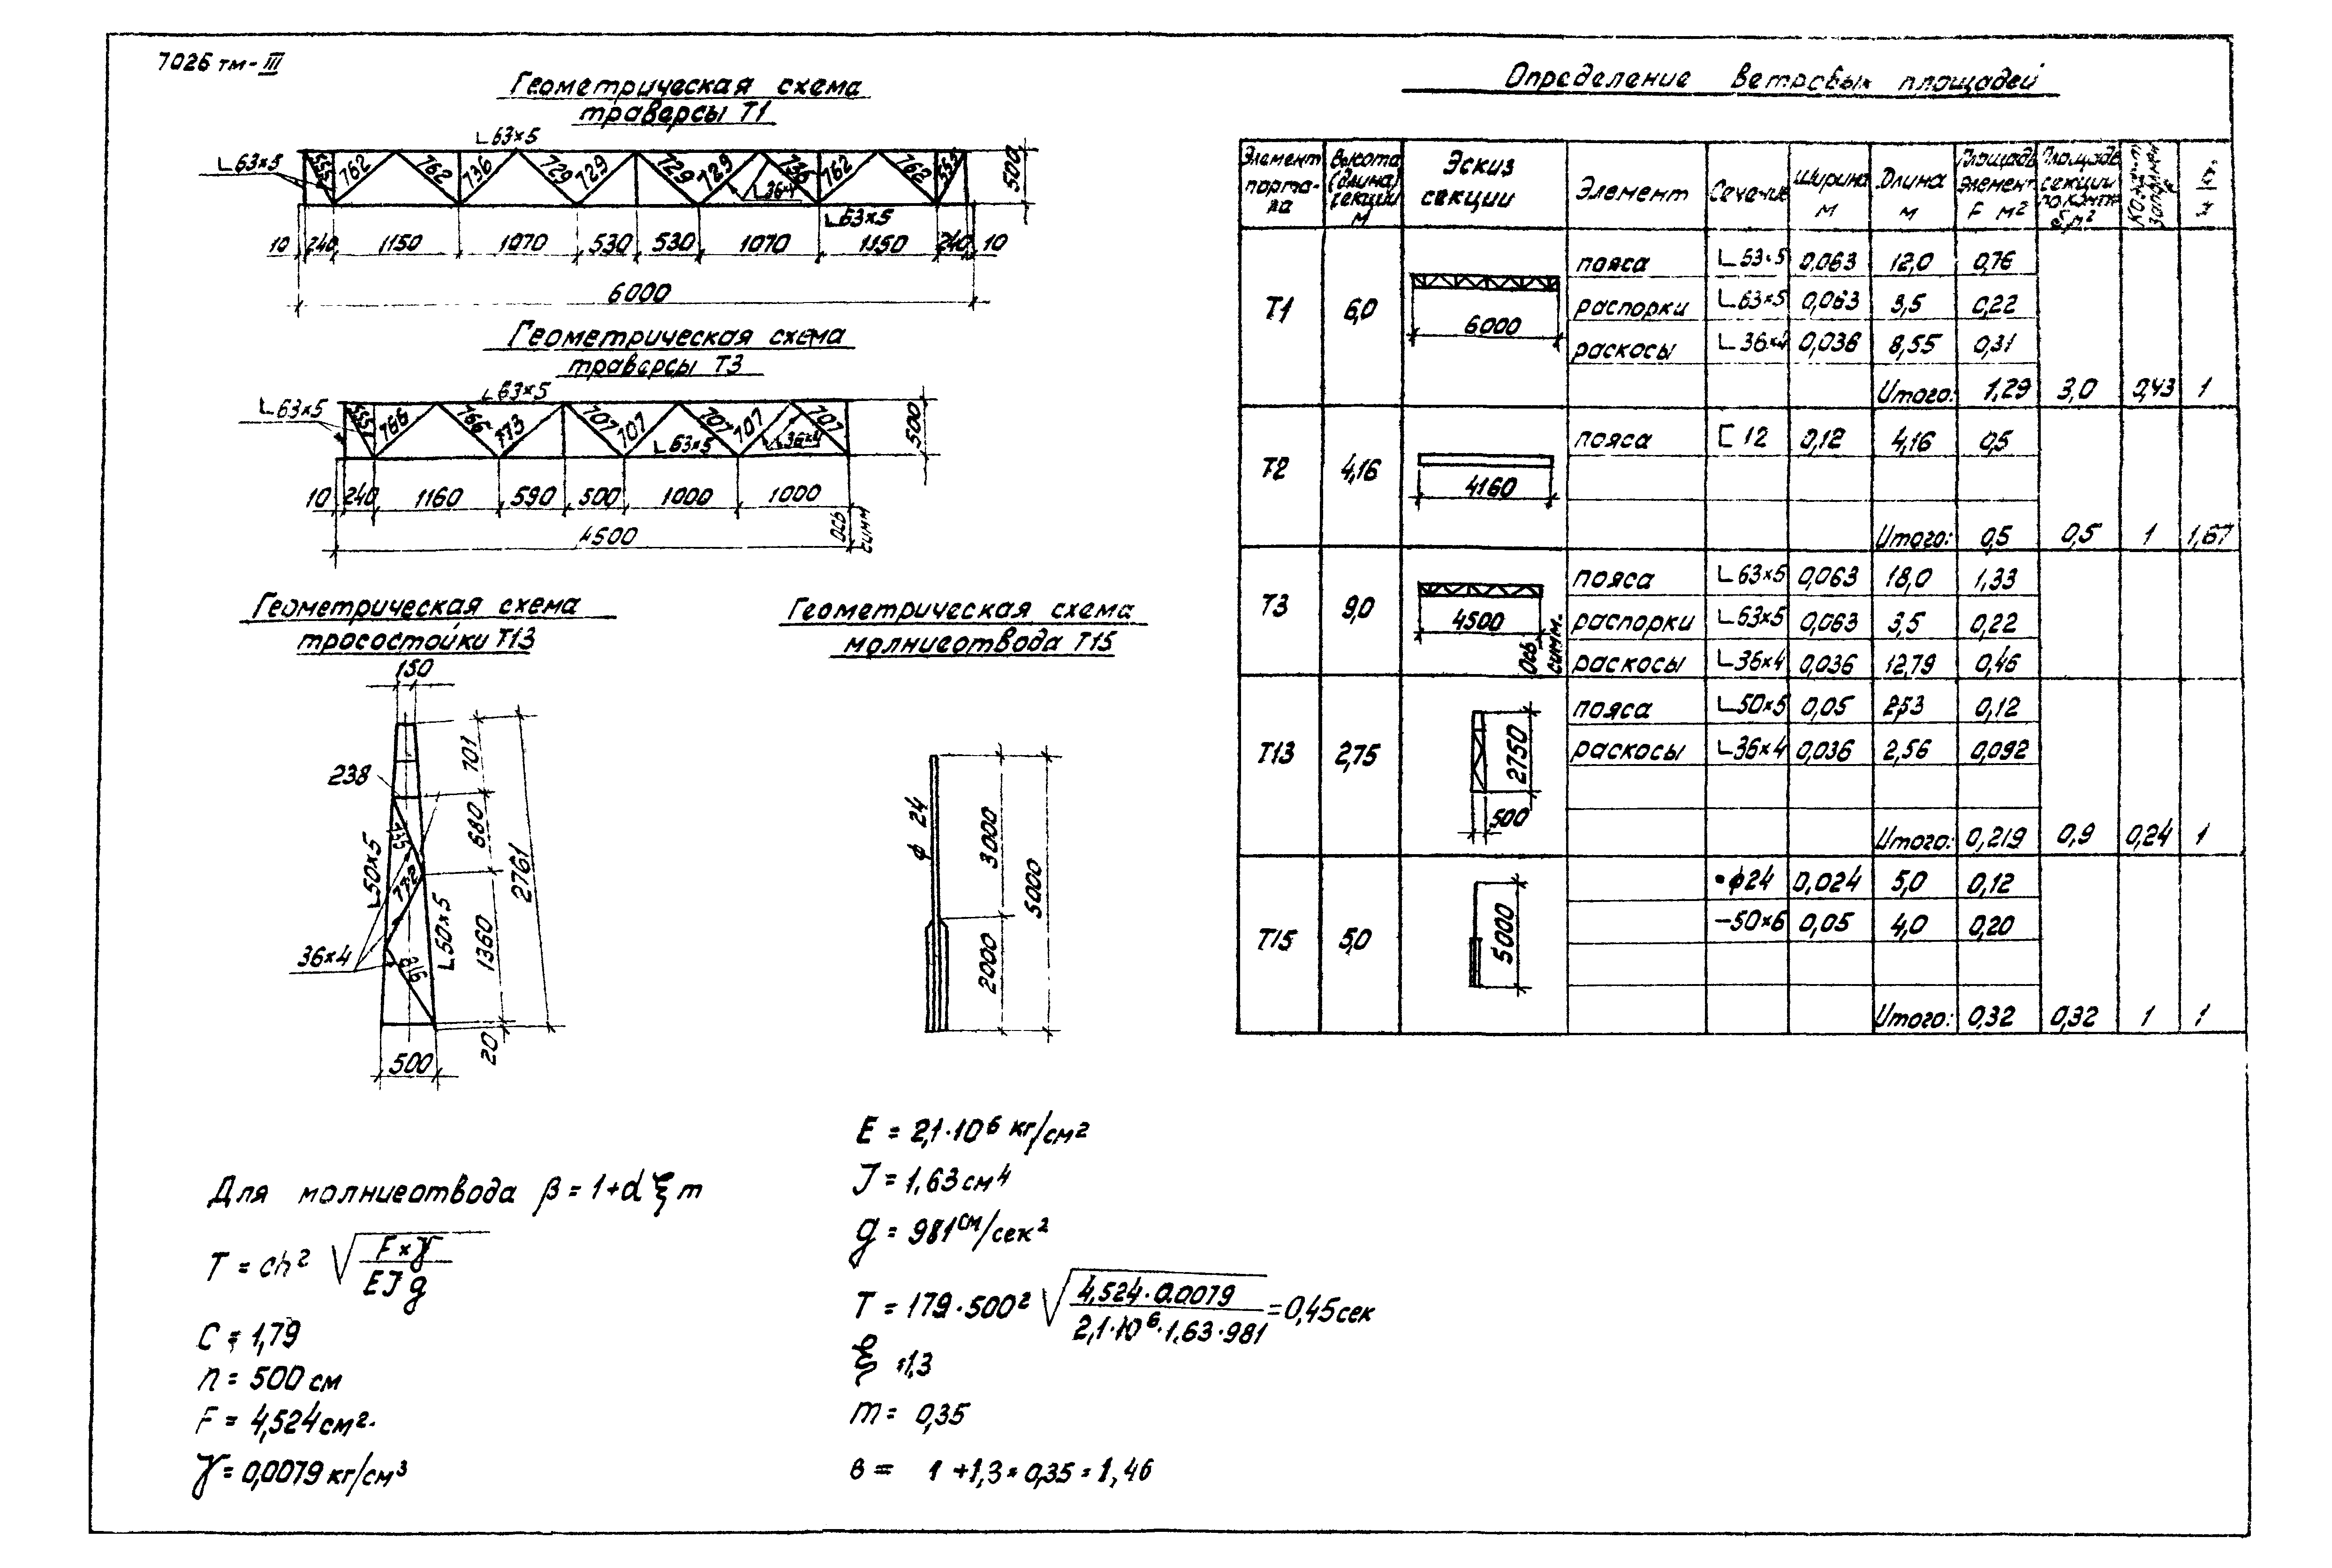 7026 тм-III
Геометрическая схема
траверсы Т1
∟63×5
∟63×5
553 762 762 736 729 729 729 729 736 762 762 553
∟36×4
∟63×5
500
10 240 1150 1070 530 530 1070 1150 240 10
6000
Геометрическая схема
траверсы Т3
∟63×5
∟63×5
557 766 766 773 707 707 707 707 707
∟63×5
∟36×4
500
10 240 1160 590 500 1000 1000
4500
ось симм
Геометрическая схема
тросостойки Т13
150
238
701
680
2761
1360
20
∟50×5
735
772
∟50×5
36×4
916
500
Геометрическая схема
молниеотвода Т15
ϕ 24
3000
5000
2000
Определение ветровых площадей
Элемент порта- ла
Высота (длина) секции м
Эскиз секции
Элемент
Сечение
Ширина м
Длина м
Площадь элемент F м²
Площадь секции по конт. S м²
Т1 6,0
6000
пояса ∟63×5 0,063 12,0 0,76
распорки ∟63×5 0,063 3,5 0,22
раскосы ∟36×4 0,036 8,55 0,31
Итого: 1,29 3,0 0,43 1
Т2 4,16
4160
пояса [ 12 0,12 4,16 0,5
Итого: 0,5 0,5 1 1,67
Т3 9,0
4500
Ось симм.
пояса ∟63×5 0,063 18,0 1,33
распорки ∟63×5 0,063 3,5 0,22
раскосы ∟36×4 0,036 12,79 0,46
Т13 2,75
2750
500
пояса ∟50×5 0,05 2,53 0,12
раскосы ∟36×4 0,036 2,56 0,092
Итого: 0,219 0,9 0,24 1
Т15 5,0
5000
•ϕ24 0,024 5,0 0,12
−50×6 0,05 4,0 0,20
Итого: 0,32 0,32 1 1
Для молниеотвода β = 1+d ξ m
T = ch² √ F×γ / EJg
C = 1,79
h = 500 см
F = 4,524 см².
γ = 0,0079 кг/см³
E = 2,1·10⁶ кг/см²
J = 1,63 см⁴
g = 981 см/сек²
T = 179·500² √ 4,524·0.0079 / 2,1·10⁶·1.63·981 = 0,45 сек
ξ =1,3
m = 0,35
в = 1 +1,3×0,35 = 1,46